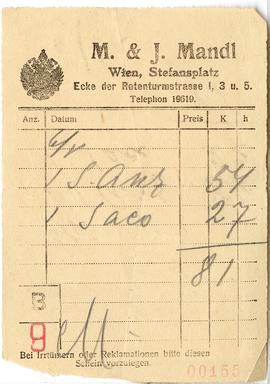 M. & J. Mandl
Wien, Stefansplatz
Ecke der Rotenturmstrasse 1, 3 u. 5.
Telephon 19619.
Anz. Datum Preis K h
6/V
1 S. Anz 54
1 Saco 27
81
3
9
Bei Irrtümern oder Reklamationen bitte diesen
Schein vorzulegen.
00155